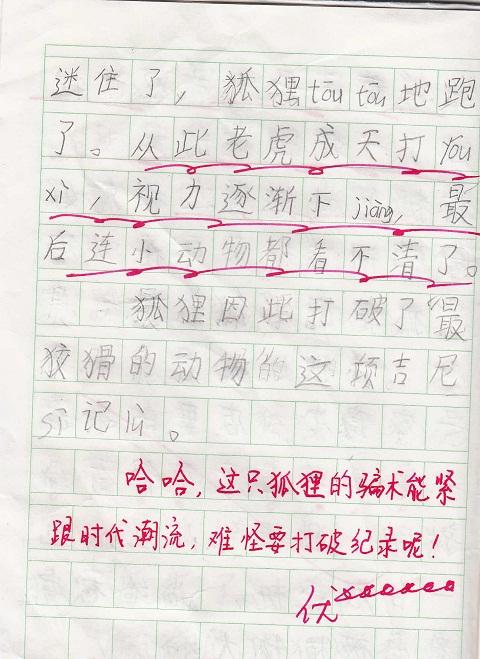 迷住了，狐狸tōu tōu地跑
了。从此老虎成天打you
xì，视力逐渐下jiàng，最
后连小动物都看不清了。
狐狸因此打破了“最
狡猾的动物的这项吉尼
sī记lù。
哈哈，这只狐狸的骗术能紧
跟时代潮流，难怪要打破纪录呢！
优